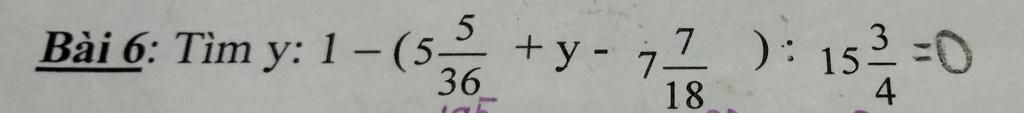 Bài 6: Tìm y: 1 – (5 5/36 + y - 7 7/18 ) : 15 3/4 =0